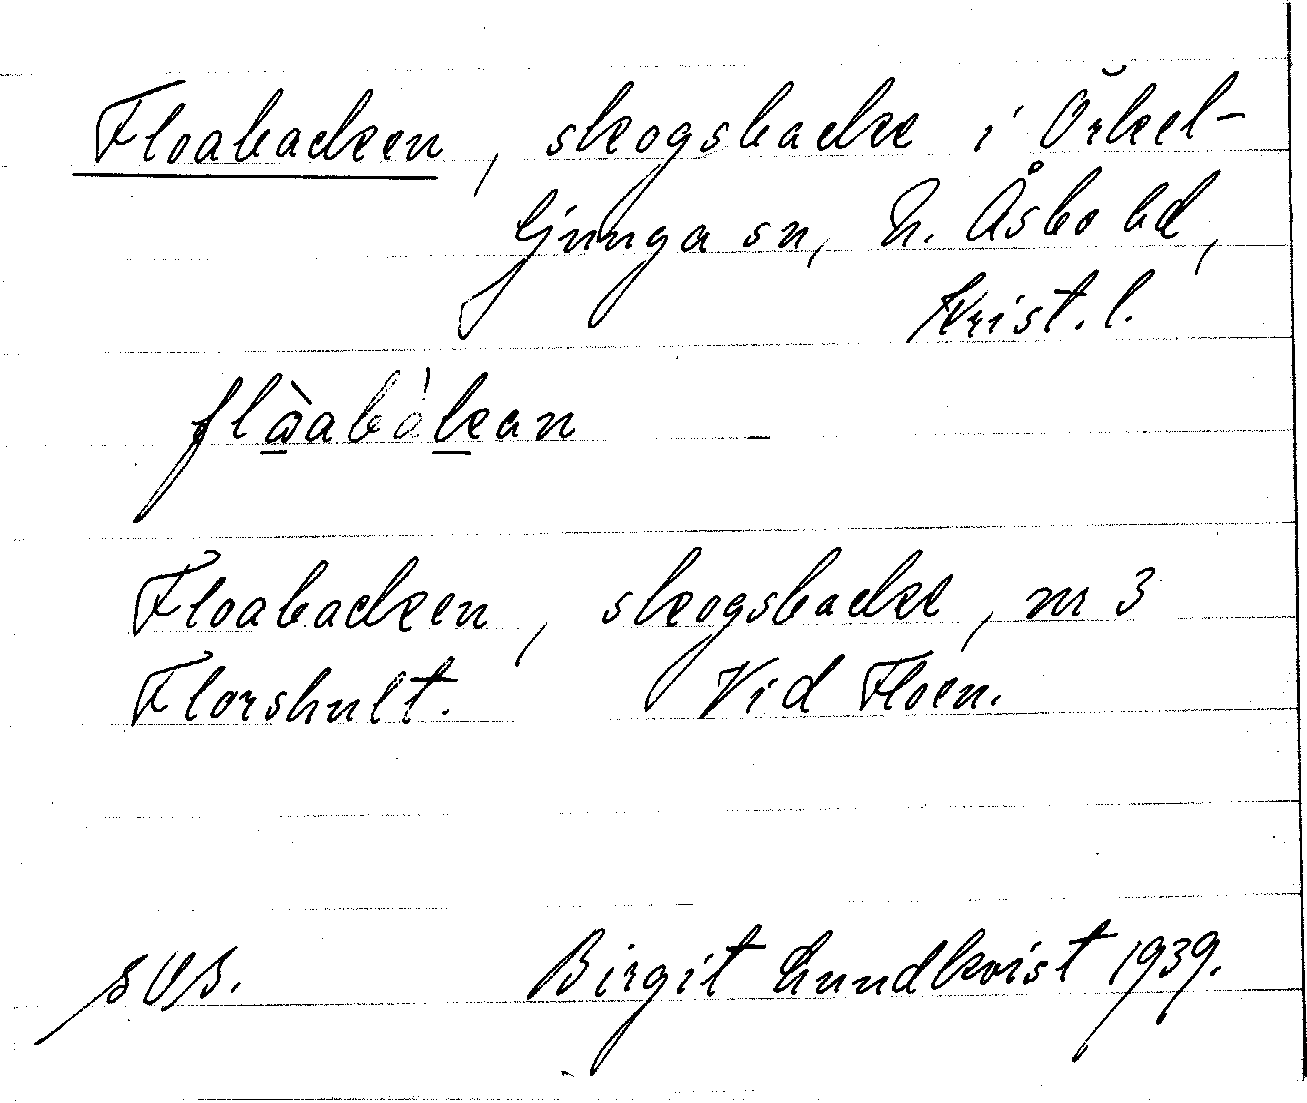 Floabacken, skogsbacke i Örkel-
ljunga sn, N. Åsbo hd,
Krist. l.
Floabacken, skogsbacke, nr 3
Florshult. Vid Floen.
Birgit Lundkvist 1939.